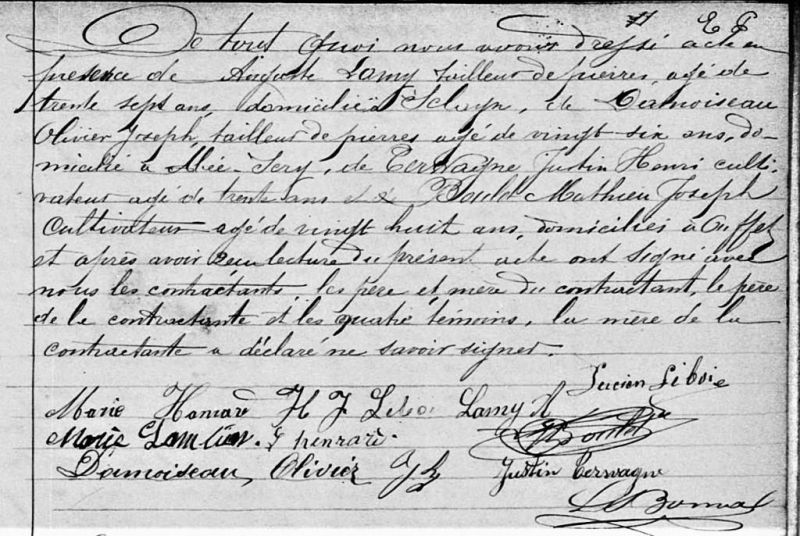 E P
De tout quoi nous avons dressé acte en
présence de Auguste Lamy tailleur de pierres, agé de
trente sept ans, domicilié à Sclayn, de Damoiseau
Olivier Joseph, tailleur de pierres agé de vingt six ans, do-
micilié à Sery, de Terwagne Justin Henri culti-
vateur agé de trente ans et de Mathieu Joseph
cultivateur agé de vingt huit ans, domiciliés à Ouffet
et après avoir reçu lecture du présent acte ont signé avec
nous les contractants, les père et mère du contractant, le père
de la contractante et les quatre témoins, la mère de la
contractante a déclaré ne savoir signer.
Lucien
Marie H J Lamy A
Marie
Damoiseau, Olivier Justin Terwagne